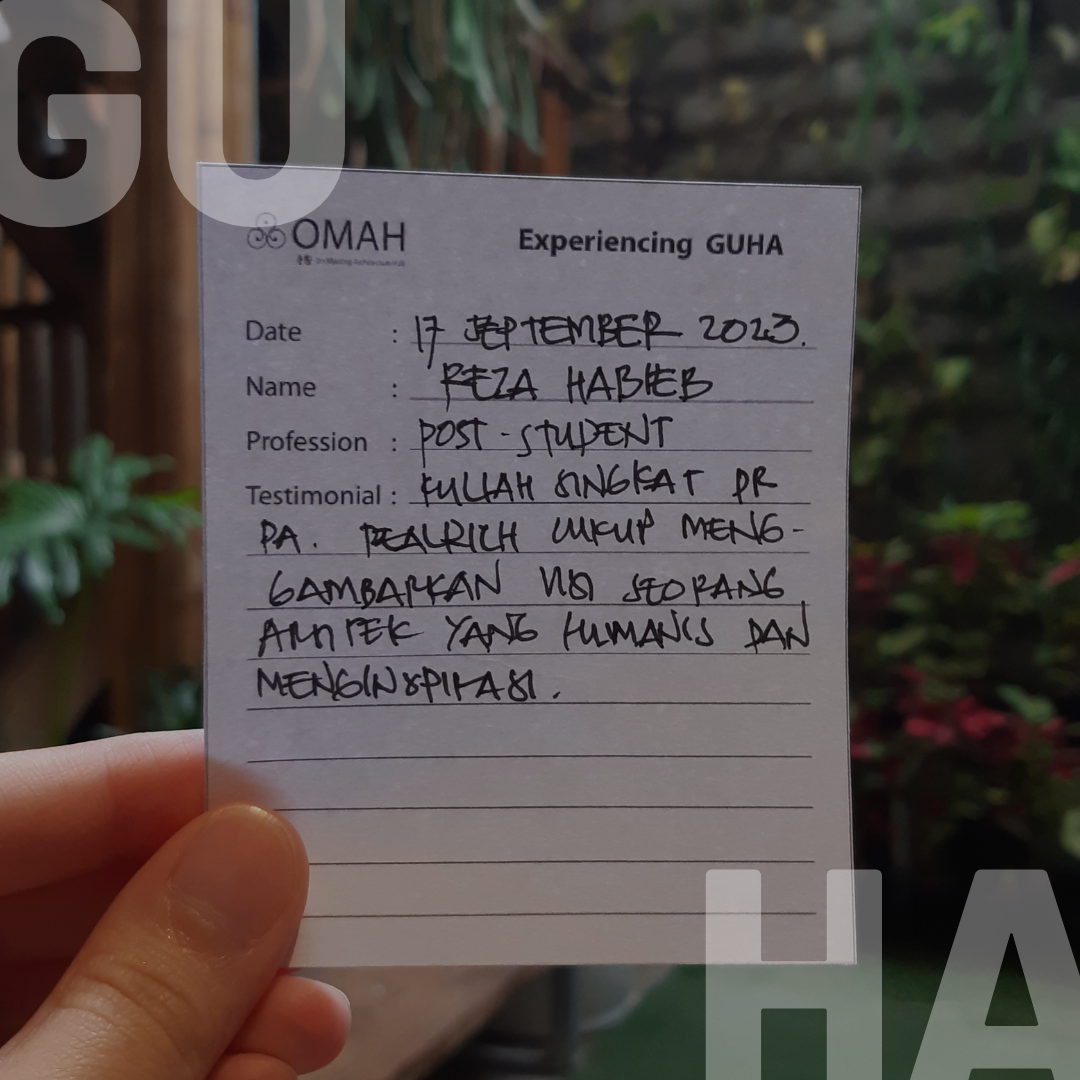 GU
OMAH
Experiencing GUHA
Date : 17 SEPTEMBER 2023.
Name : REZA HABIEB
Profession : POST - STUDENT
Testimonial : KULIAH SINGKAT DR
PA. REALRICH CUKUP MENG-
GAMBARKAN VISI SEORANG
ARSITEK YANG HUMANIS DAN
MENGINSPIRASI.
HA